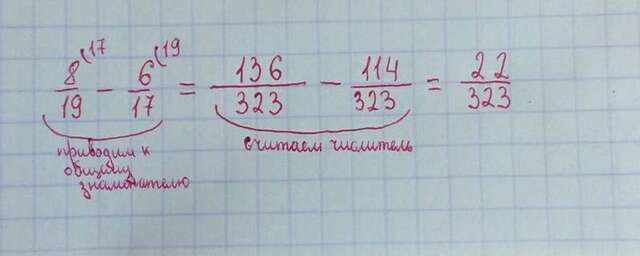 8/19 (17 − 6/17 (19 = 136/323 − 114/323 = 22/323
приводим к
общему
знаменателю
считаем числитель